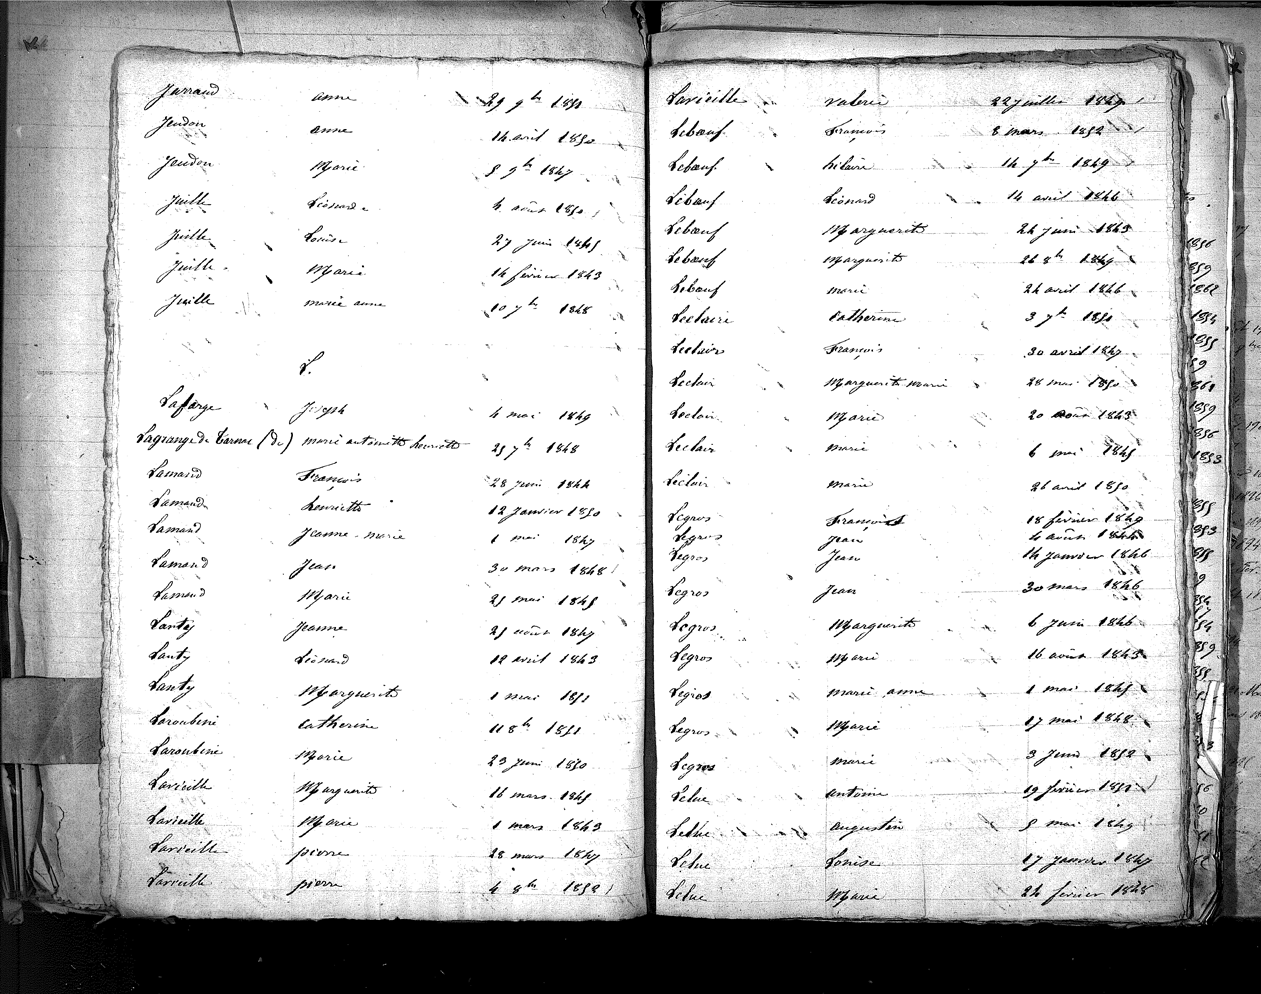 Jarraud anne 29 9bre 1851
Jeudon anne 14 avril 1850
Jeudon Marie 5 9bre 1847
Juille Léonarde 4 août 1850
Juille Louise 27 juin 1845
Juille Marie 14 février 1843
Juille marie anne 10 7bre 1848
L.
Lafarge Joseph 4 mai 1849
Lagrange de Tarnac (de) marie antoinette henriette 25 7bre 1848
Lamaud François 28 juin 1844
Lamaud henriette 12 janvier 1850
Lamaud Jeanne-marie 1 mai 1847
Lamaud Jean 30 mars 1848
Lamaud Marie 25 mai 1845
Lanty Jeanne 25 août 1847
Lanty Léonard 12 avril 1843
Lanty Marguerite 1 mai 1851
Laroubine Catherine 11 8bre 1851
Laroubine Marie 23 juin 1850
Lavieille Marguerite 16 mars 1845
Lavieille Marie 1 mars 1843
Lavieille pierre 28 mars 1847
Lavieille pierre 4 8bre 1852
Lavieille valerie 22 juillet 1849
Lebœuf François 8 mars 1852
Lebœuf hilaire 14 7bre 1849
Lebœuf Léonard 14 avril 1846
Lebœuf Marguerite 24 juin 1843
Lebœuf Marguerite 26 8bre 1849
Lebœuf marie 24 avril 1846
Leclaire Catherine 3 7bre 1851
Leclair François 30 avril 1847
Leclair Marguerite marie 28 mai 1850
Leclair Marie 20 août 1843
Leclair marie 6 mai 1845
Leclair marie 26 avril 1850
Legros François 18 février 1849
Legros Jean 4 août 1844
Legros Jean 14 janvier 1846
Legros Jean 30 mars 1846
Legros Marguerite 6 juin 1846
Legros Marie 16 août 1843
Legros marie anne 1 mai 1845
Legros Marie 17 mai 1848
Legros marie 3 juin 1852
Lelue antoine 19 février 1852
Lelue augustin 5 mai 1849
Lelue Louise 17 janvier 1847
Lelue Marie 24 février 1848